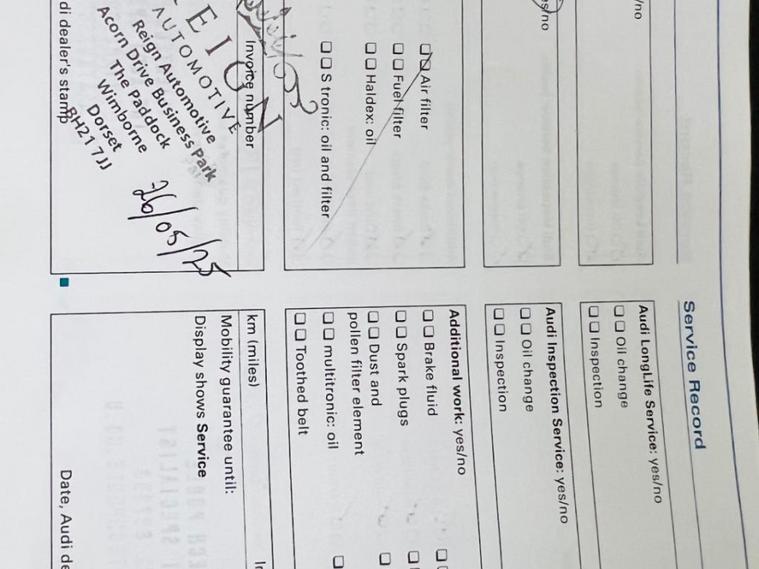 Service Record
no
s/no
Air filter
Fuel filter
Haldex: oil
S tronic: oil and filter
Invoice number
EIGN
AUTOMOTIVE
Reign Automotive
Acorn Drive Business Park
The Paddock
Wimborne
Dorset
BH21 7JJ
26/05/25
di dealer's stamp
Audi LongLife Service: yes/no
Oil change
Inspection
Audi Inspection Service: yes/no
Oil change
Inspection
Additional work: yes/no
Brake fluid
Spark plugs
Dust and
pollen filter element
multitronic: oil
Toothed belt
km (miles)
Mobility guarantee until:
Display shows Service
Date, Audi de